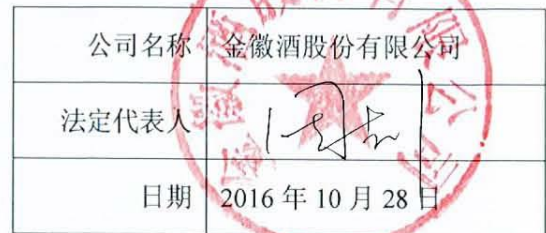 公司名称 金徽酒股份有限公司
法定代表人
日期 2016年10月28日